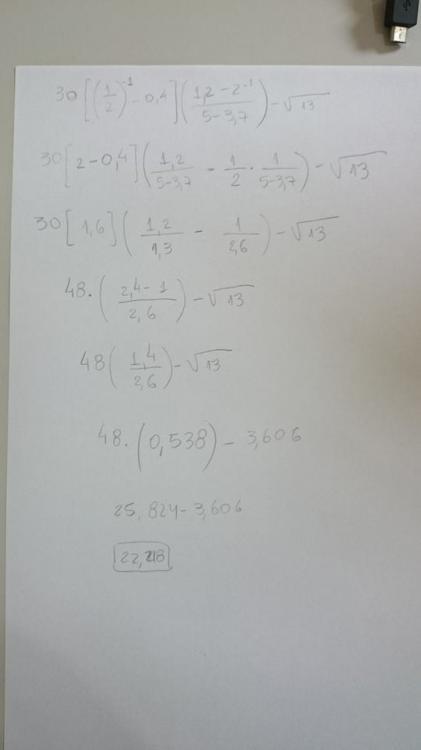 30[(1/2)^-1 - 0,4]((1,2 - 2^-1)/(5-3,7)) - √13
30[2-0,4](1,2/(5-3,7) - 1/2 · 1/(5-3,7)) - √13
30[1,6](1,2/1,3 - 1/2,6) - √13
48.((2,4-1)/2,6) - √13
48(1,4/2,6) - √13
48.(0,538) - 3,606
25,824-3,606
22,218